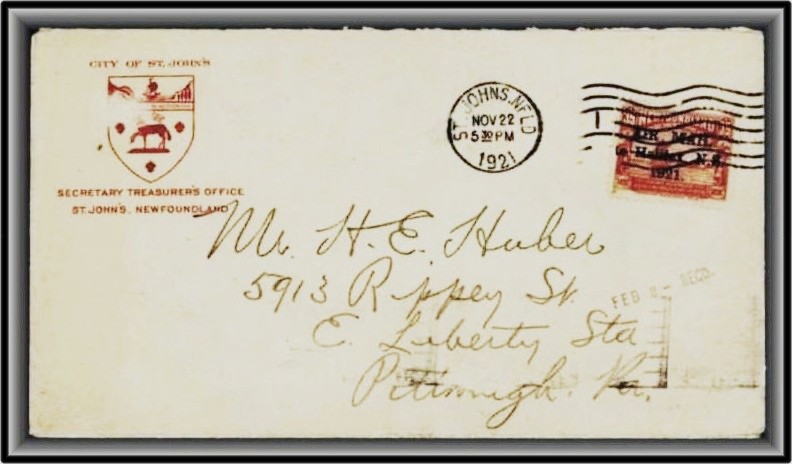 CITY OF ST. JOHN'S
SECRETARY TREASURER'S OFFICE
ST. JOHN'S, NEWFOUNDLAND
ST. JOHNS, NFLD
NOV 22
5 30 PM
1921
AIR MAIL
to Halifax, N.S.
1921.
Mr. H. E. Huber
5913 Rippey St.
E. Liberty Sta
Pittsburgh. Pa.
FEB RECD.